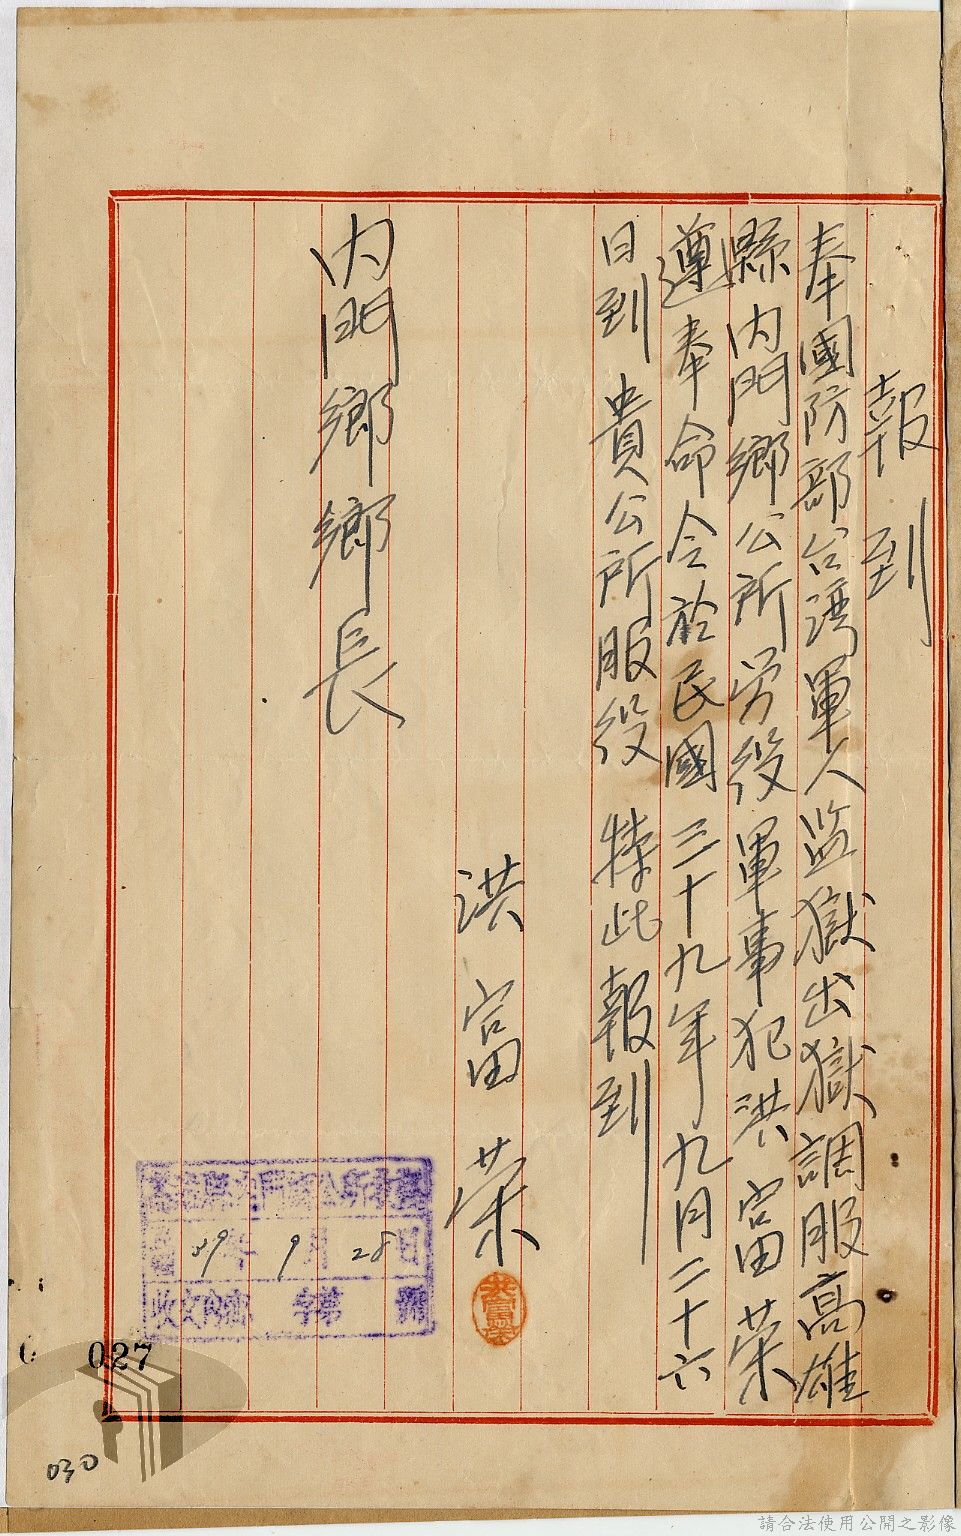 報到
奉國防部台湾軍人监獄出獄調服高雄
縣內門鄉公所労役軍事犯洪富荣
遵奉命令於民國三十九年九月二十六
日到 貴公所服役 特此報到
洪富荣
內門鄉鄉長
39年9月28日
收文內 字第 號
洪富榮
027
030
請合法使用公開之影像